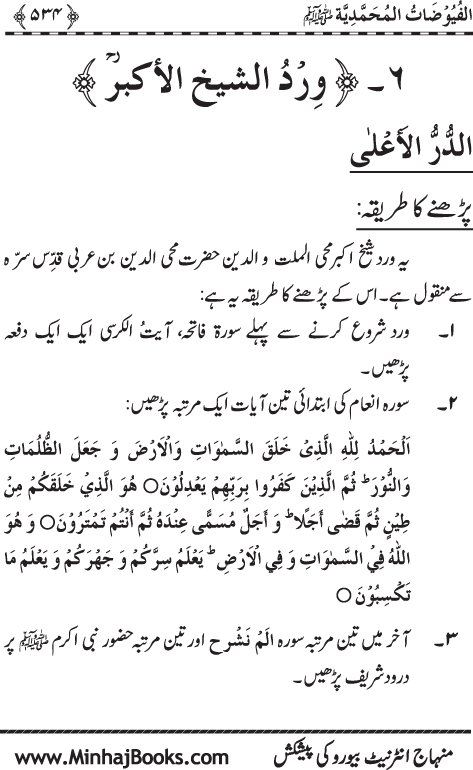 الفُیُوْضَاتُ المُحَمَّدِیَّۃ ﷺ ﴿ ۵۳۴ ﴾
۶۔ ﴿ وِرْدُ الشیخ الأکبرؒ ﴾
الدُّرُّ الأَعْلٰی
پڑھنے کا طریقہ:
یہ ورد شیخ اکبر محی الملت و الدین حضرت محی الدین بن عربی قدّس سرّہ
سے منقول ہے۔ اس کے پڑھنے کا طریقہ یہ ہے:
۱۔ ورد شروع کرنے سے پہلے سورۃ فاتحہ، آیتُ الکرسی ایک ایک دفعہ
پڑھیں۔
۲۔ سورہ انعام کی ابتدائی تین آیات ایک مرتبہ پڑھیں:
اَلْحَمْدُ لِلّٰهِ الَّذِیْ خَلَقَ السَّمٰوَاتِ وَالْاَرْضَ وَ جَعَلَ الظُّلُمَاتِ
وَالنُّوْرَ ؕ ثُمَّ الَّذِیْنَ کَفَرُوا بِرَبِّهِمْ یَعْدِلُوْنَ○ هُوَ الَّذِیْ خَلَقَکُمْ مِنْ
طِیْنٍ ثُمَّ قَضٰی أَجَلًا ؕ وَ أَجَلٌ مُسَمًّی عِنْدَهُ ثُمَّ أَنْتُمْ تَمْتَرُوْنَ○ وَ هُوَ
اللّٰهُ فِیْ السَّمٰوَاتِ وَ فِی الْاَرْضِ ؕ یَعْلَمُ سِرَّکُمْ وَ جَهْرَکُمْ وَ یَعْلَمُ مَا
تَکْسِبُوْنَ ○
۳۔ آخر میں تین مرتبہ سورہ الَمْ نَشْرح اور تین مرتبہ حضور نبی اکرم ﷺ پر
درود شریف پڑھیں۔
منہاج انٹرنیٹ بیورو کی پیشکش www.MinhajBooks.com